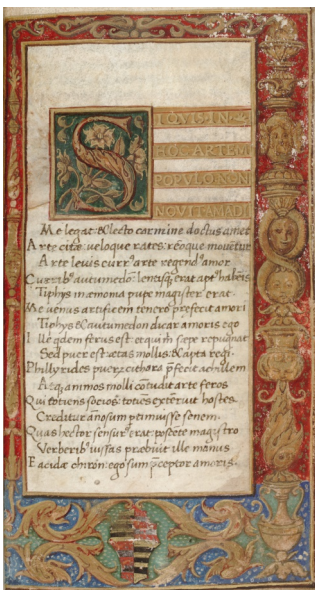 SIQVIS IN
HOC ARTEM
POPVLO NON
NOVIT AMADI
Me legat: & lecto carmine doctus amet
Arte citæ veloque rates: reoque movetur
Arte levis curr9 arte regend9 amor
Currib9 autumedon: lentisq erat apt9 habenis
Tiphys in æmonia pupe magister erat
Me venus artificem tenero prefecit amori
Tiphys & autumedon dicar amoris ego
Ille qdem ferus est: et qui m sæpe repugnat
Sed puer est: ætas mollis: & apta regi.
Phillyrides puer cithara pfecit achillem
Atq animos molli cotudit arte feros
Qui totiens socios: totiens exterruit hostes
Creditur anosum ptimuisse senem.
Quas hector sensur9 erat: poscente magistro
Verberib9 iussas præbuit ille manus
Eacidæ chiron: ego sum pceptor amoris.